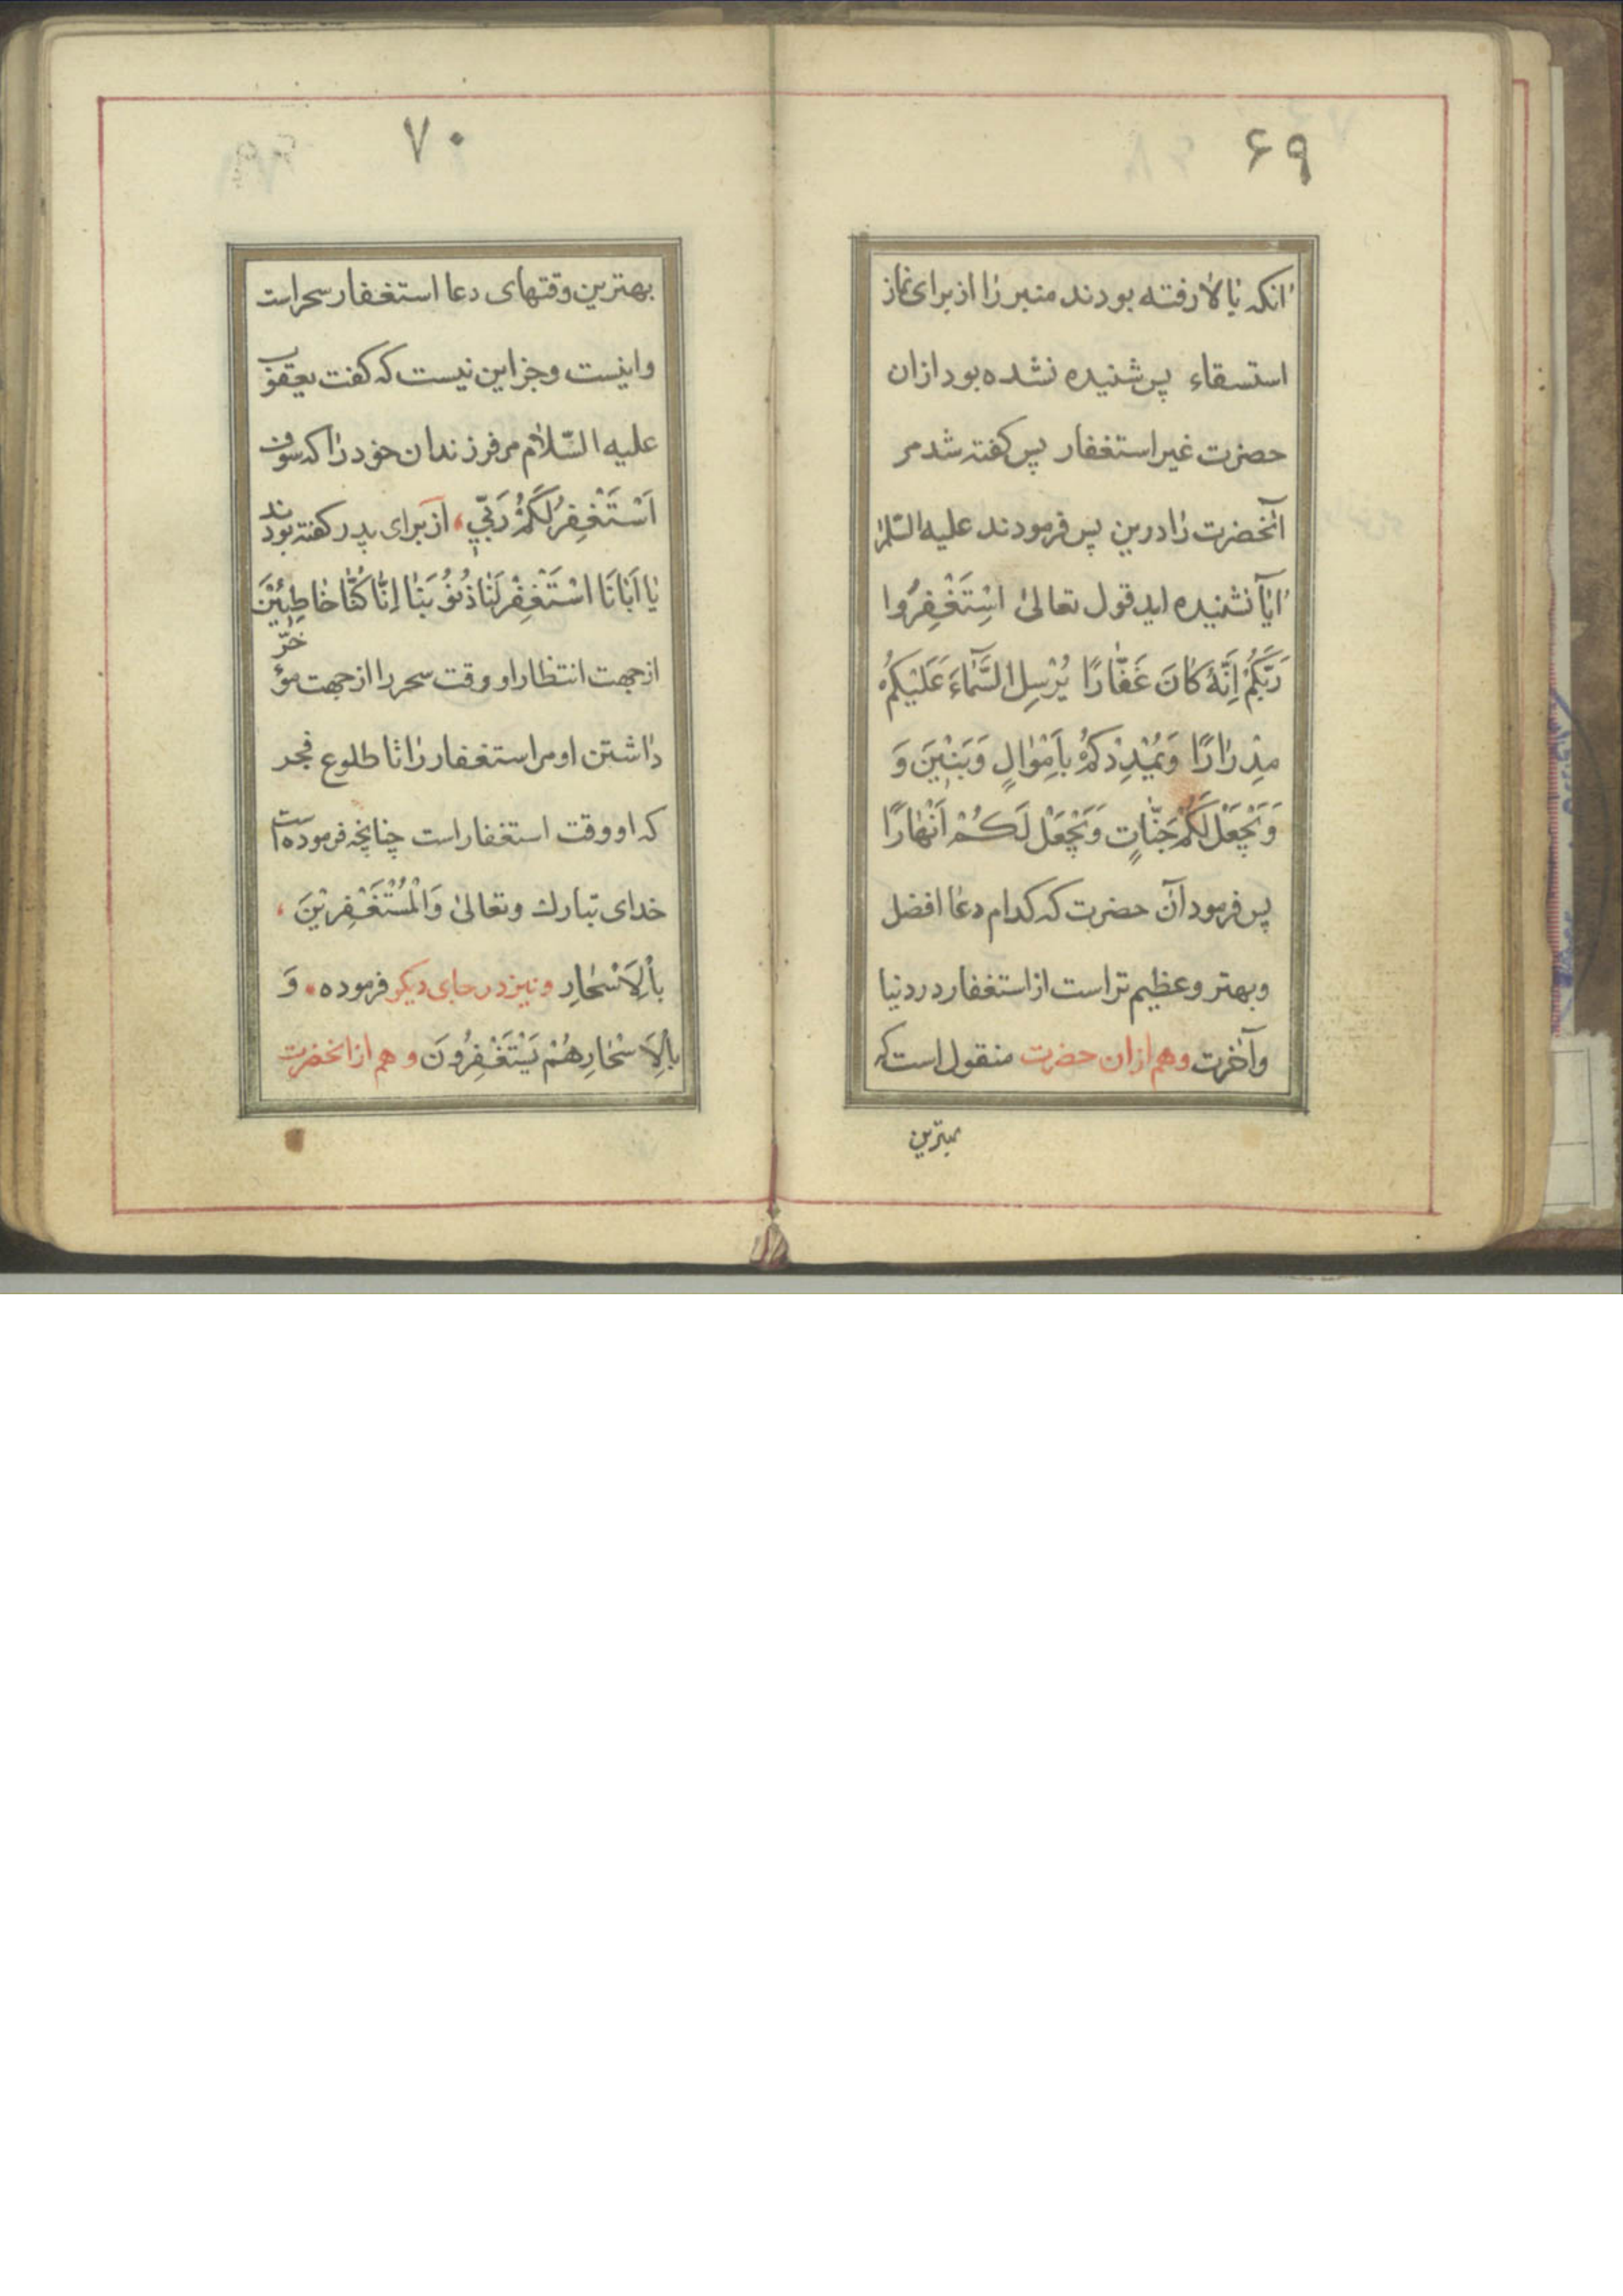 ۶۹
انکه بالا رفته بودند منبر را از برای نماز
استسقاء پس شنیده نشده بود ازان
حضرت غیر استغفار پس کفته شد مر
آنحضرت را درین پس فرمودند علیه السّلام
ایا نشنیده اید قول تعالیٰ اسْتَغْفِرُوا
رَبَّکُمْ اِنَّهُ کانَ غَفّارًا یُرْسِلِ السَّمآءَ عَلَیْکُمْ
مِدْرارًا وَیُمْدِدْکُمْ بِاَمْوٰالٍ وَبَنٖینَ وَ
وَیَجْعَلْ لَکُمْ جَنّاتٍ وَیَجْعَلْ لَکُمْ اَنْهارًا
پس فرمود آن حضرت که کدام دعا افضل
وبهتر وعظیم تر است از استغفار در دنیا
وآخرت وهم ازان حضرت منقول است که
بهترین
۷۰
بهترین وقتهای دعا استغفار سحر است
واینست وجز این نیست که کفت یعقوب
علیه السّلام مر فرزندان خود را که سوف
اَسْتَغْفِرُ لَکُمْ رَبّٖی، از برای پدر کفته بودند
یٰا اَبانَا اسْتَغْفِرْ لَنا ذُنُوبَنا اِنّا کُنّا خاطِئینَ
از جهت انتظار او وقت سحر را از جهت مؤخّر
داشتن او مر استغفار را تا طلوع فجر
که او وقت استغفار است چنانچه فرموده است
خدای تبارك وتعالیٰ وَالْمُسْتَغْفِرینَ،
بِالْاَسْحارِ ونیز در جای دیکر فرموده، وَ
بِالْاَسْحارِ هُمْ یَسْتَغْفِرُونَ وهم ازانحضرت